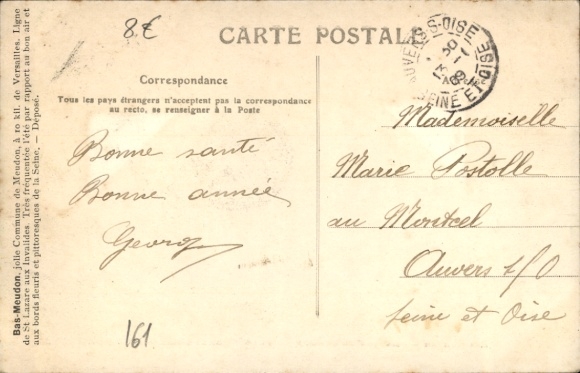 8 €
CARTE POSTALE
Correspondance
Tous les pays étrangers n'acceptent pas la correspondance
au recto, se renseigner à la Poste
Bonne santé
Bonne année
Georg
161
AUVERS-S-OISE
SEINE ET OISE
Mademoiselle
Marie Postolle
au Montcel
Auvers s/O
Seine et Oise
Bas-Meudon, jolie Commune de Meudon, à 10 kil. de Versailles. Ligne
de St Lazare aux Invalides. Très fréquentée l'été par rapport au bon air et
aux bords fleuris et pittoresques de la Seine, — Déposé.